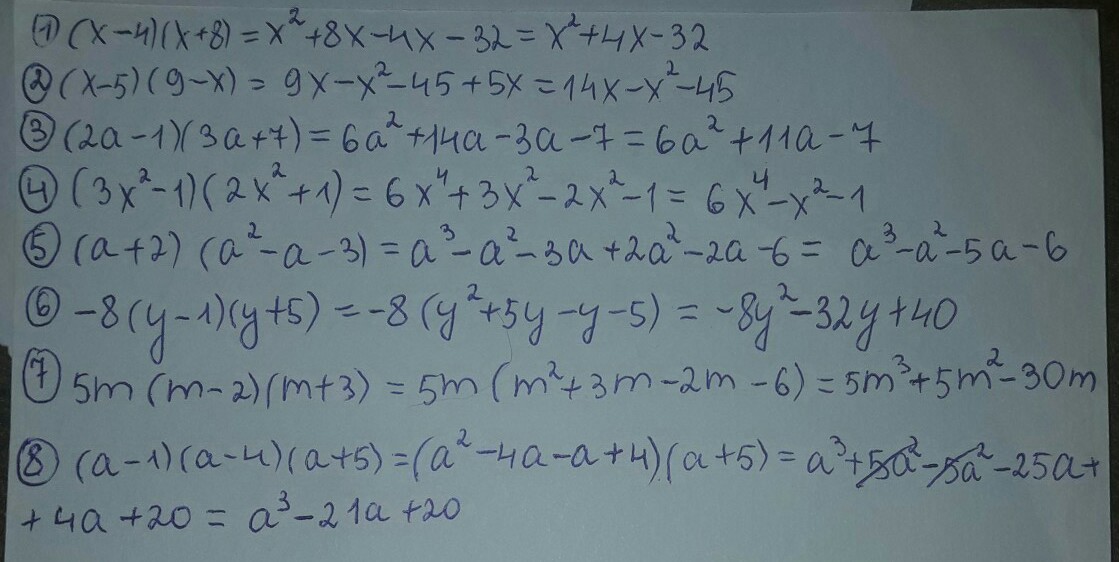 ① (x-4)(x+8) = x²+8x-4x-32 = x²+4x-32
② (x-5)(9-x) = 9x-x²-45+5x = 14x-x²-45
③ (2a-1)(3a+7) = 6a²+14a-3a-7 = 6a²+11a-7
④ (3x²-1)(2x²+1) = 6x⁴+3x²-2x²-1 = 6x⁴-x²-1
⑤ (a+2)(a²-a-3) = a³-a²-3a+2a²-2a-6 = a³-a²-5a-6
⑥ -8(y-1)(y+5) = -8(y²+5y-y-5) = -8y²-32y+40
⑦ 5m(m-2)(m+3) = 5m(m²+3m-2m-6) = 5m³+5m²-30m
⑧ (a-1)(a-4)(a+5) = (a²-4a-a+4)(a+5) = a³+5a²-5a²-25a+
+4a+20 = a³-21a+20